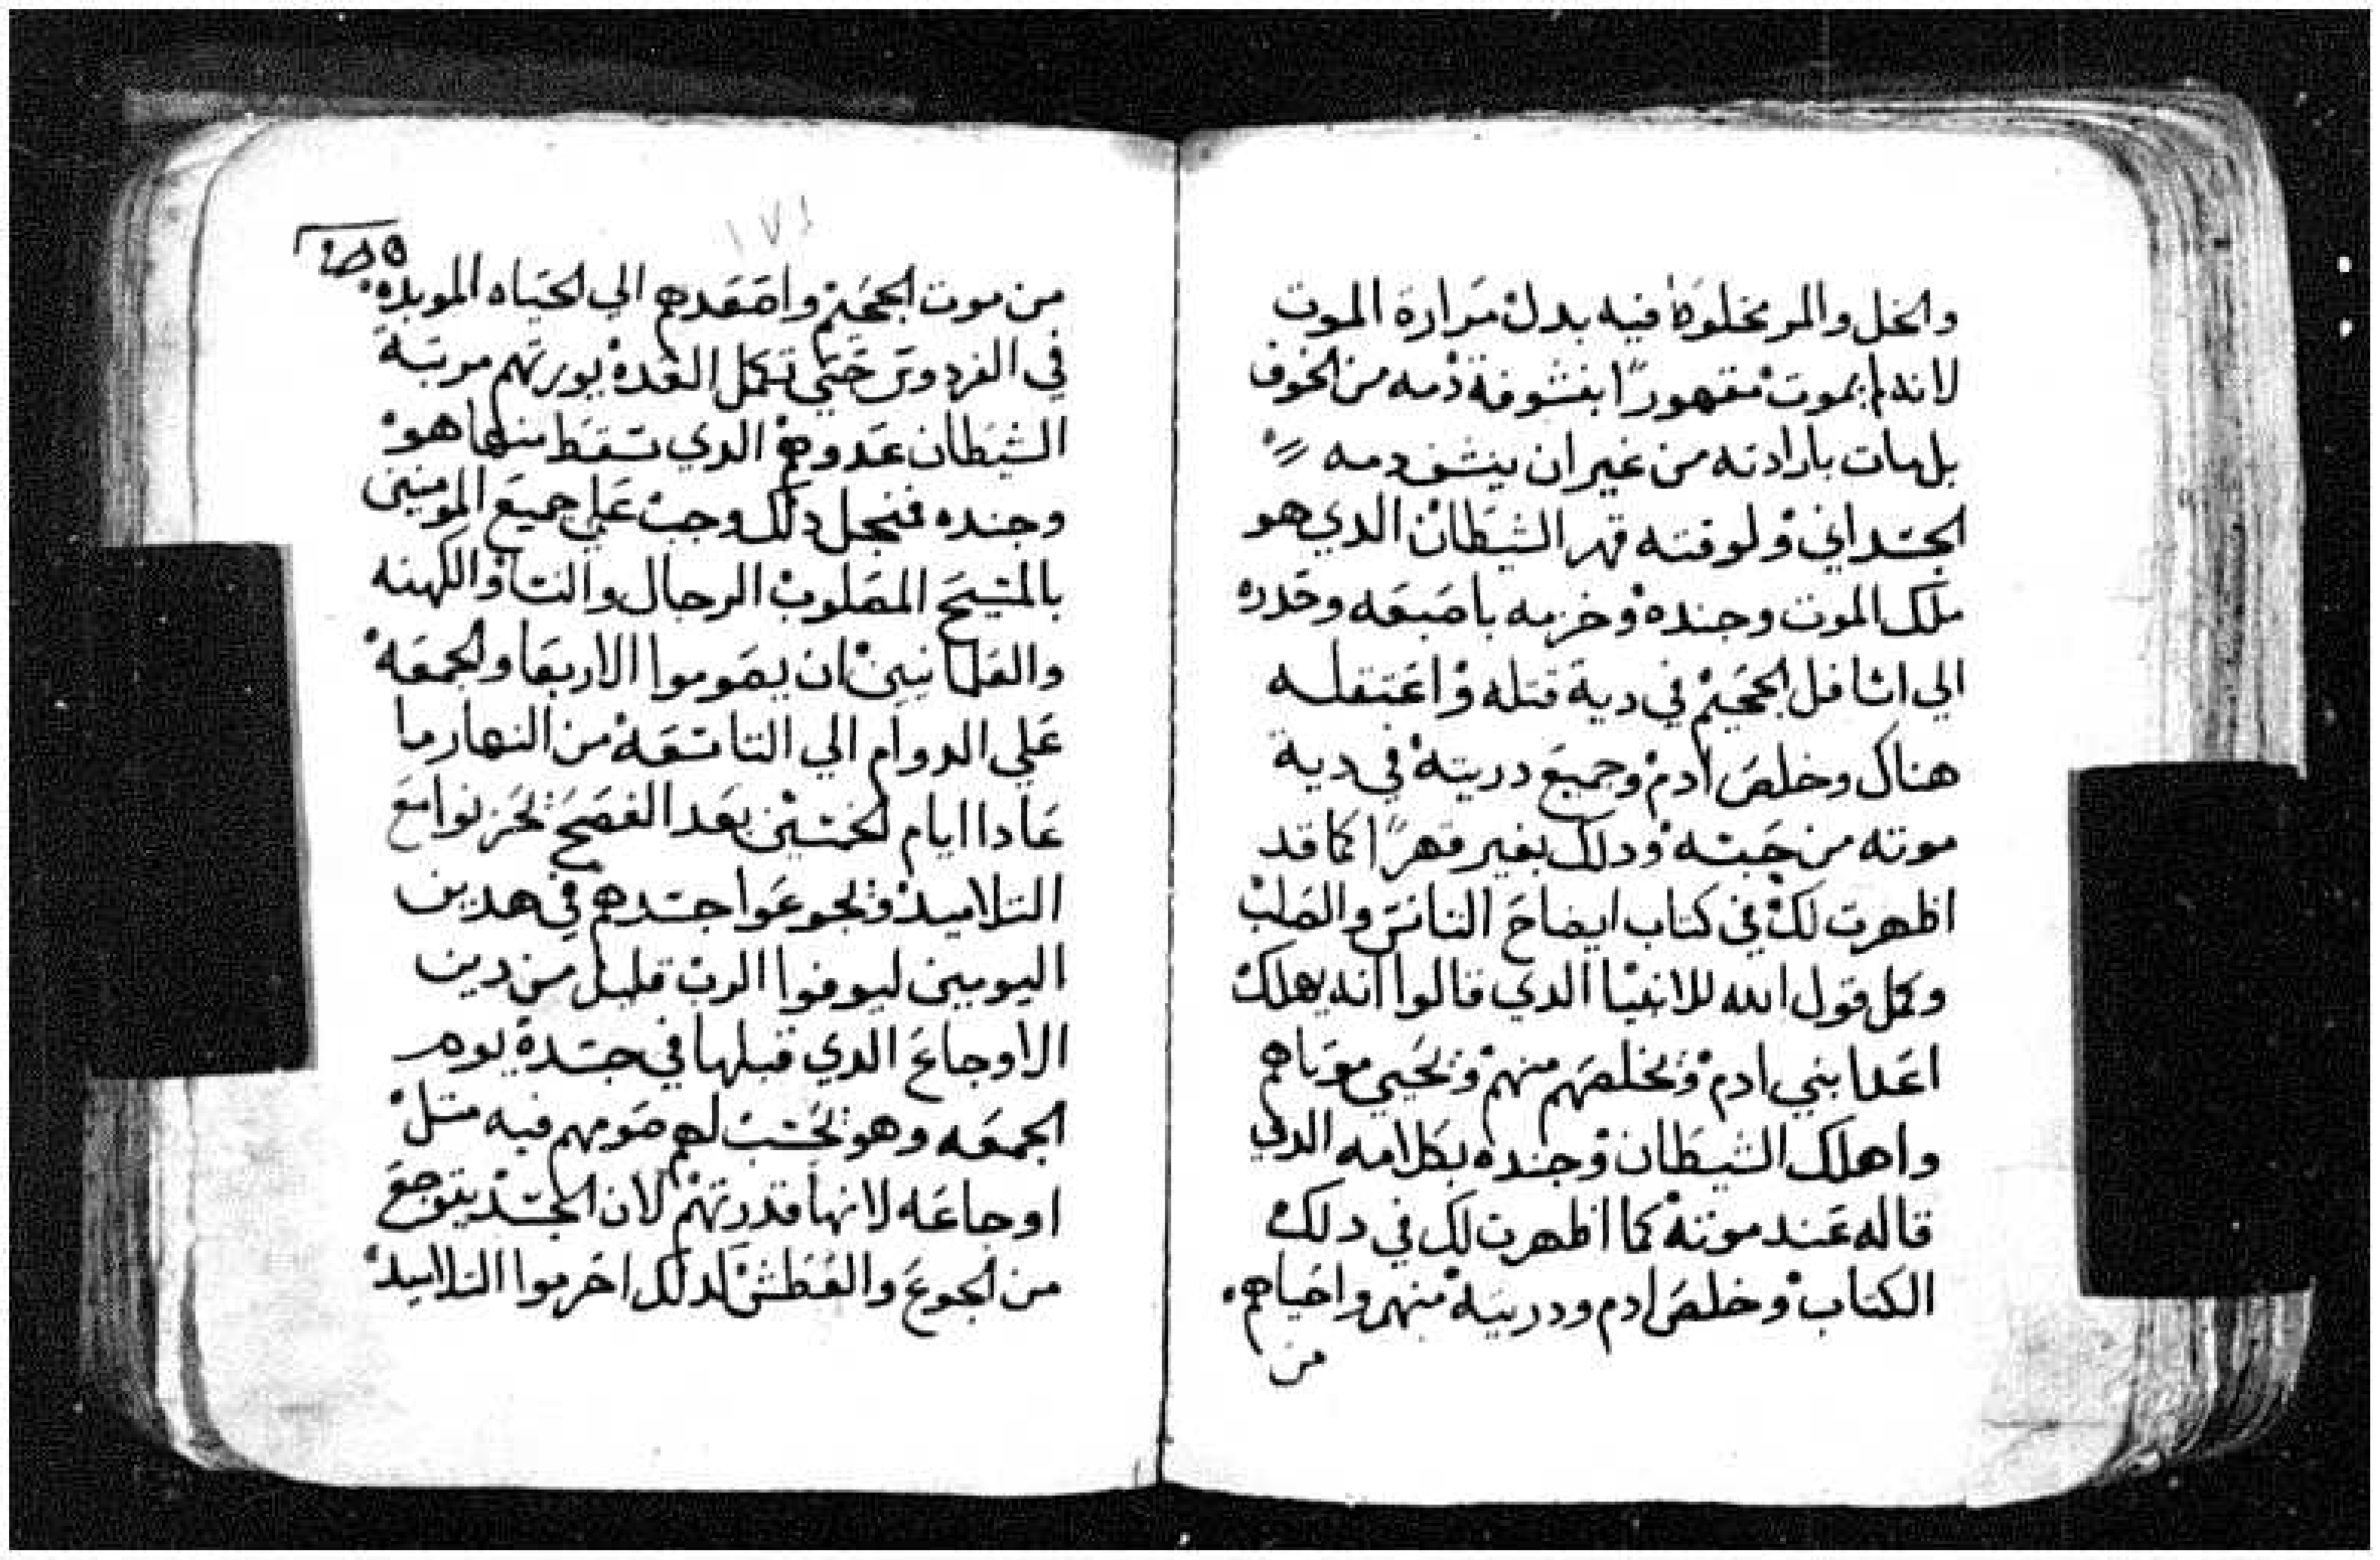 والخل والمر مخلوة فيه بدل مرارة الموت
لانه لم يموت مقهورًا بنشوفة دمه من الخوف
بل مات بارادته من غير ان ينشف دمه
الجسداني ولوقته قهر الشيطان الدي هو
ملك الموت وجنده وخزيه باصبعه وحدره
الي اسافل الجحيم في دية قتله واعتقله
هناك وخلص ادم وجميع دريته في دية
موته من حبسه ودلك بغير قهرًا كما قد
اظهرت لك في كتاب ايضاح التانس والصلب
وكمل قول الله للانبيا الدي قالوا انه يهلك
اعدا بني ادم ويخلصهم منهم ويحيي موتاهم
واهلك الشيطان وجنده بكلامه الدي
قاله عند موته كما اظهرت لك في دلك
الكتاب وخلص ادم ودريته منهم واحياهم
من
١٧١
من موت الجحيم واصعدهم الي الحياه الموبده
في الفردوس حتي تكمل العده يورتهم مرتبة
الشيطان عدوهم الدي سقط منها هو
وجنده فنجل دلك وجب علي جميع المومنين
بالمسيح المصلوب الرجال والنسا والكهنه
والعلمانيين ان يصوموا الاربعا والجمعه
علي الدوام الي التاسعه من النهار ما
عادا ايام الخمسين بعد الفصح يحزنوا مع
التلاميد ويجوعوا اجسدهم في هدين
اليومين ليوفوا الرب قليل من دين
الاوجاع الدي قبلها في جسده يوم
الجمعه وهو يحسب لهم صومهم فيه متل
اوجاعه لانها قدرتهم لان الجسد يتوجع
من الجوع والعطش لدلك احرموا التلاميد